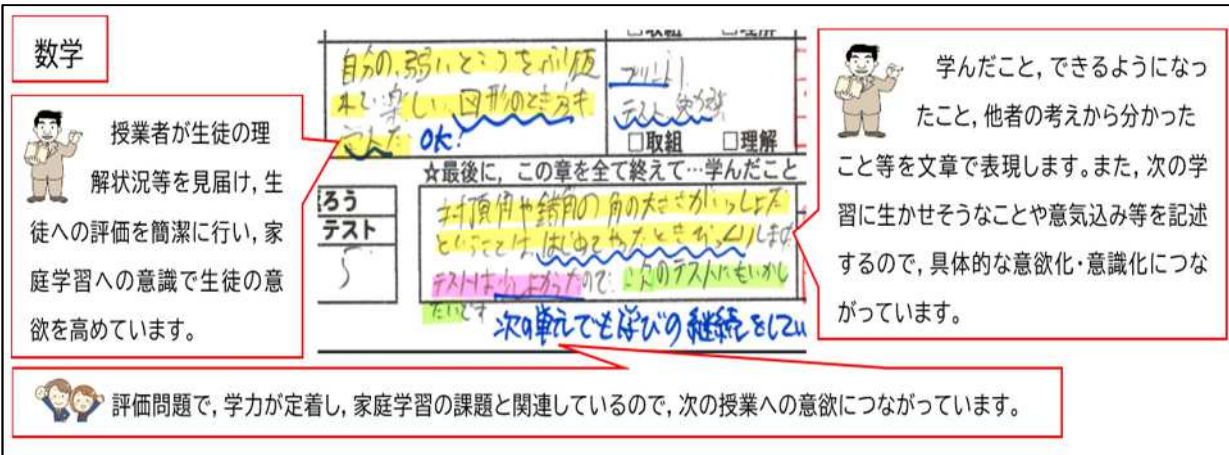 数学
授業者が生徒の理
解状況等を見届け,生
徒への評価を簡潔に行い,家
庭学習への意識で生徒の意
欲を高めています。
自分の弱いところをふり返
れて楽しい図形のとき方も
OK!
プリント!
テスト
□取組 □理解
☆最後に,この章を全て終えて…学んだこと
ろう
テスト
5
対頂角や錯角の角の大きさがいっしょだ
ということは,はじめてやったときびっくりしました
テストは少しよかったので次のテストにもいかし
たいです
次の単元でも学びの継続をしてい
学んだこと,できるようになっ
たこと,他者の考えから分かった
こと等を文章で表現します。また,次の学
習に生かせそうなことや意気込み等を記述
するので,具体的な意欲化・意識化につな
がっています。
評価問題で,学力が定着し,家庭学習の課題と関連しているので,次の授業への意欲につながっています。